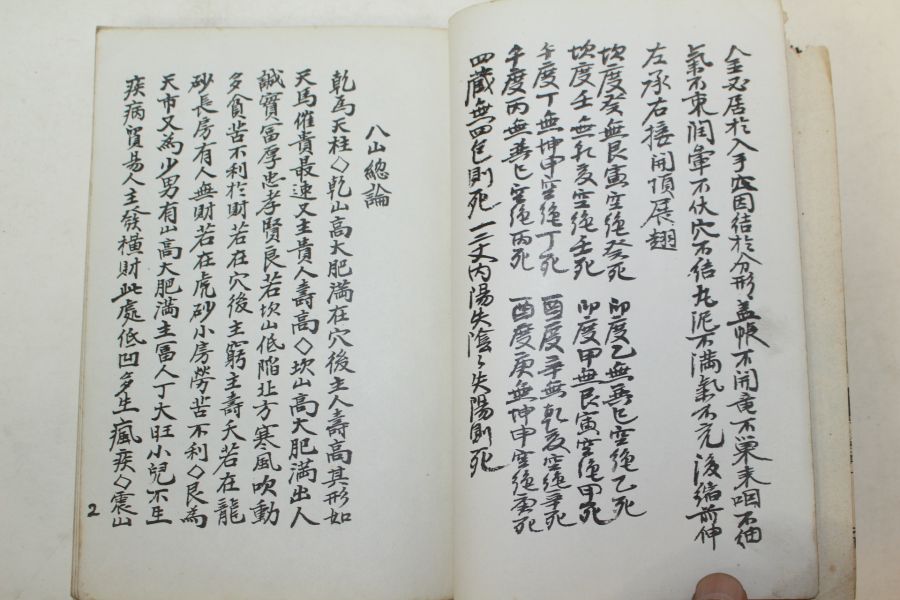 全必居於入手 因結於分形蓋帳不開竟不巢來咽不細
氣不束润軍不伏穴不结丸泥不满氣不充後缩前伸
左承右接開頂展翅
坎度癸無艮寅空绝癸死 卯度乙無巽巳空绝乙死
坎度壬無乾亥空绝壬死 卯度甲無艮寅空绝甲死
午度丁無坤申空绝丁死 酉度辛無乾亥空绝辛死
午度丙無巽巳空绝丙死 酉度庚無坤申空绝庚死
四藏無四包則死一二丈内陽失陰々失陽則死
八山總論
乾為天柱◇乾山高大肥満在穴後主人壽高其形如
天馬催貴最速又主貴人壽高◇坎山高大肥満出人
誠實富厚忠孝賢良若坎山低陷北方寒風吹動
多貪苦不利於財若在穴後主窮主壽夭若在龍
砂長房有人無財若在虎砂小房勞苦不利◇艮為
天市又為少男有山高大肥満主富人丁大旺小兒不生
疾病貿易人主發横財此處低凹多生瘋疾◇震山
2